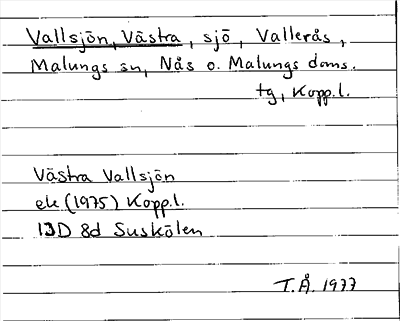 Vallsjön, Västra, sjö, Vallerås,
Malungs sn, Nås o. Malungs doms.
tg, Kopp.l.
Västra Vallsjön
ek (1975) Kopp.l.
13D 8d Suskölen
T.Å. 1977